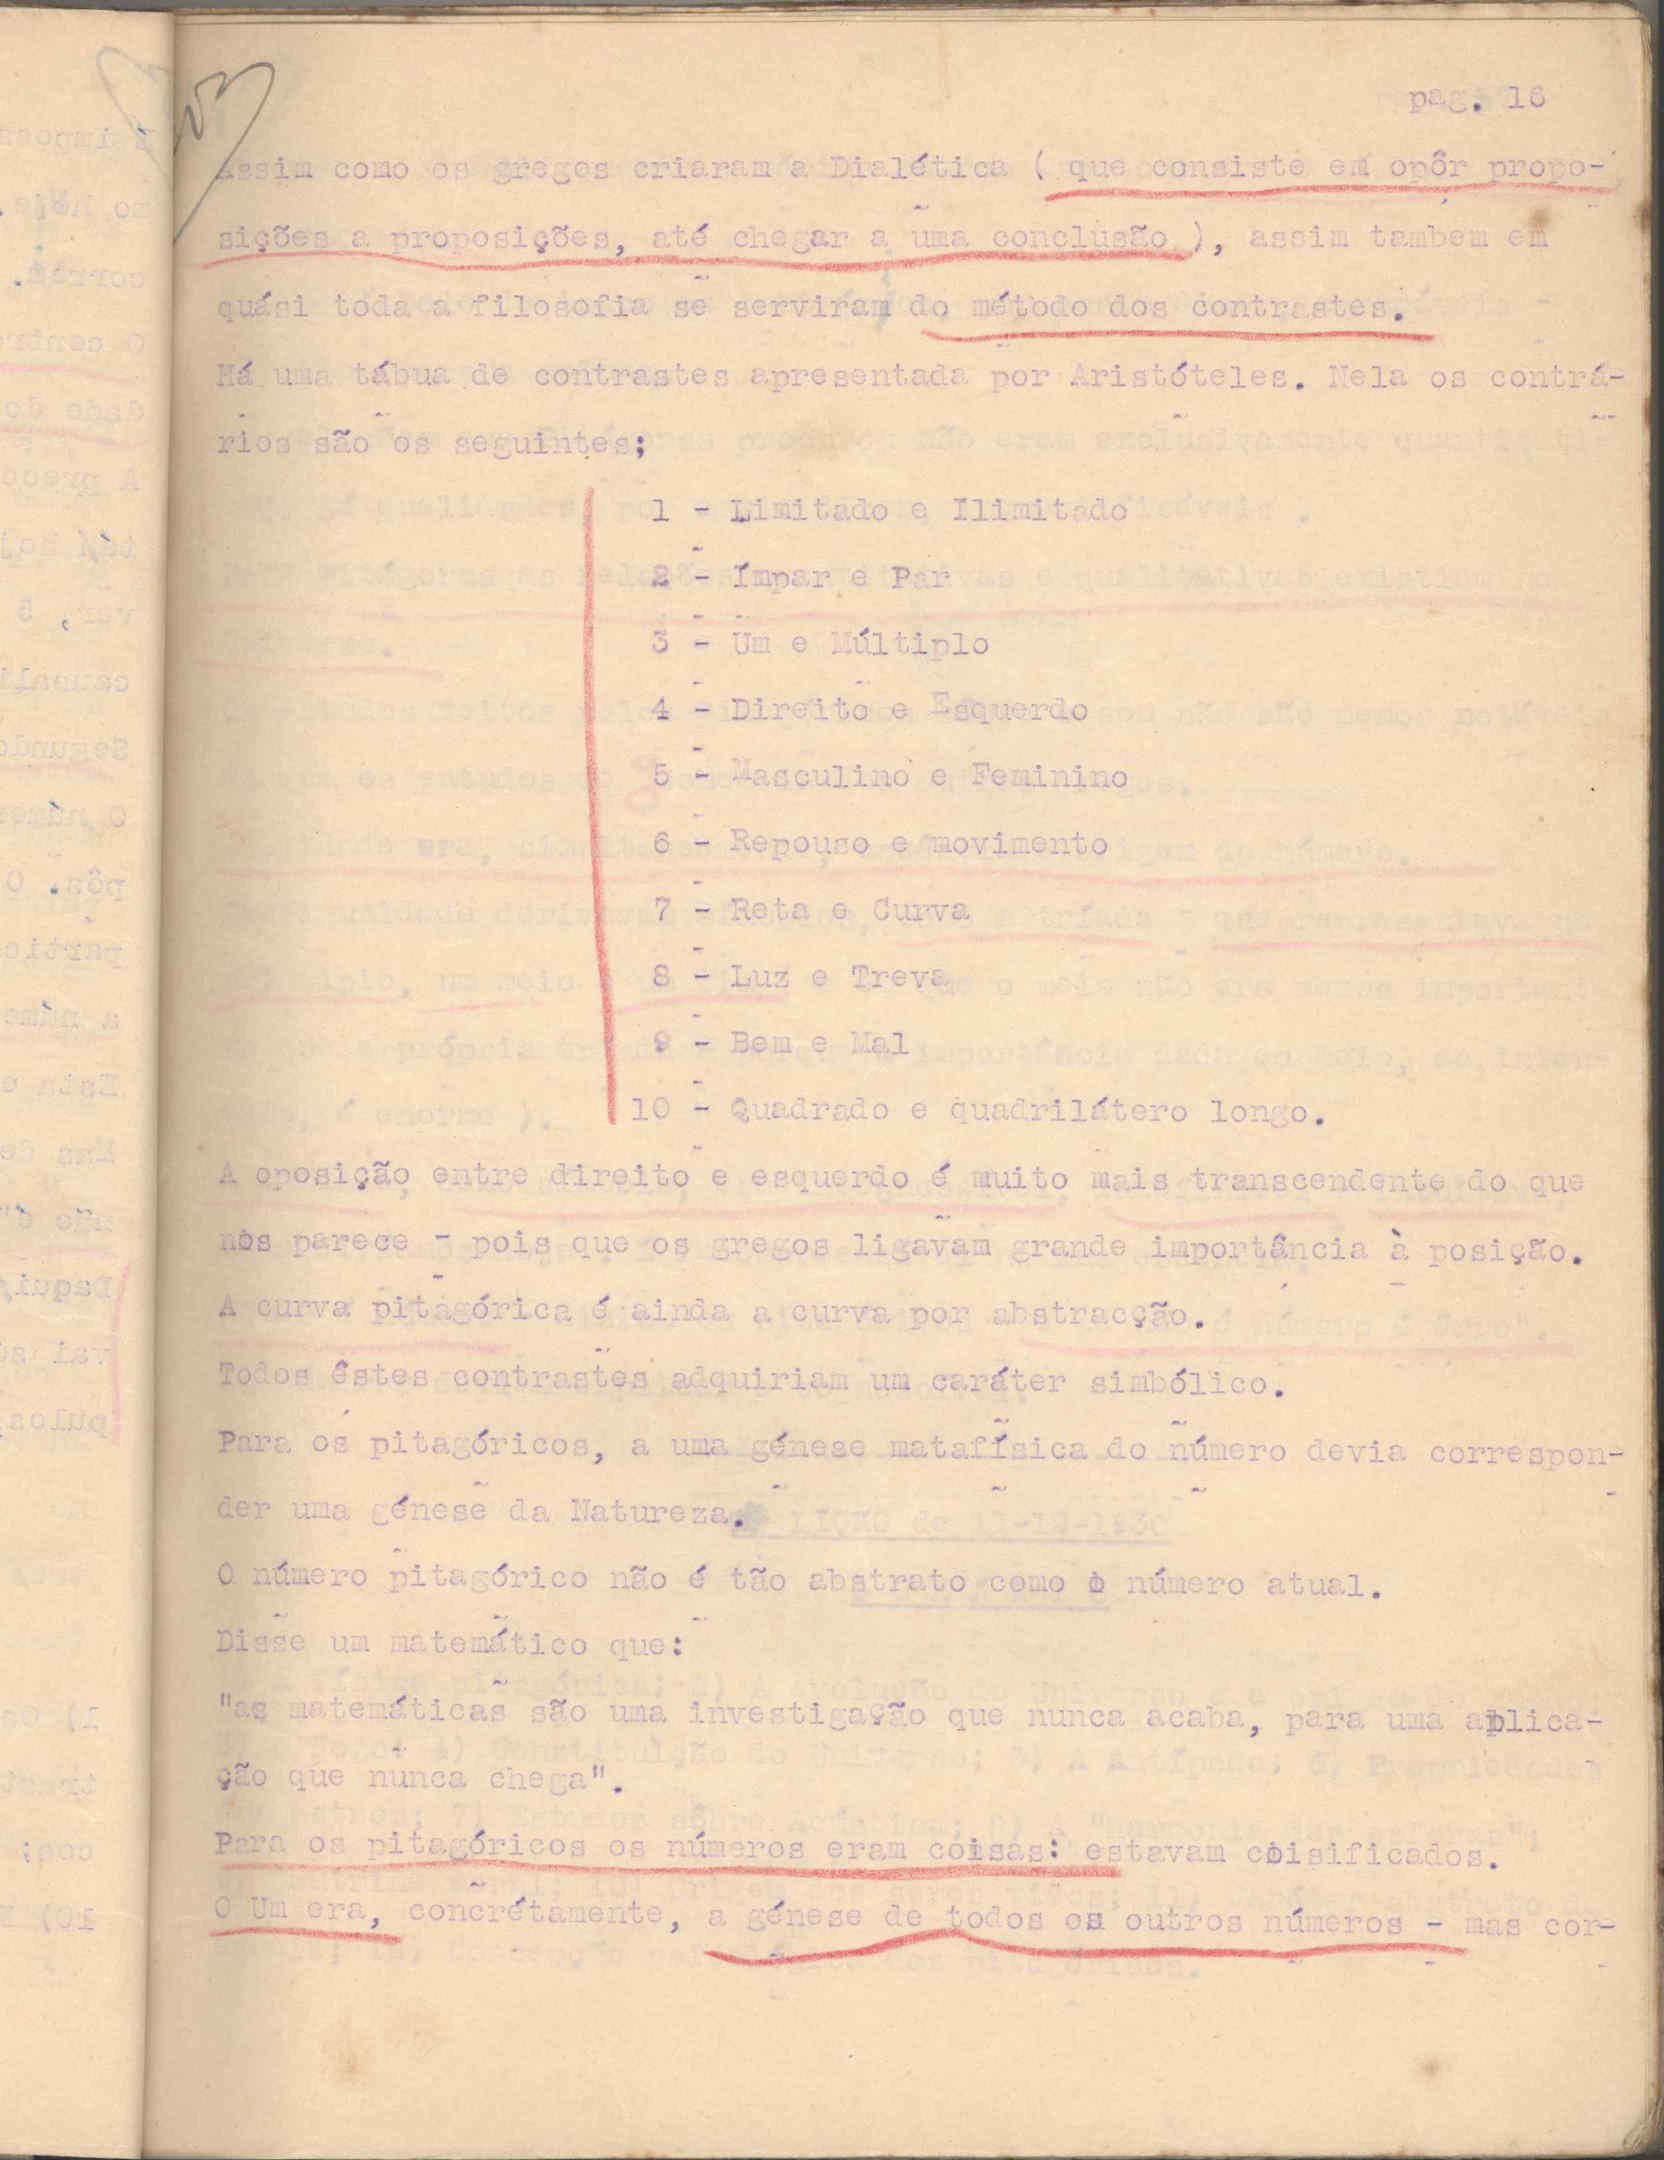 pag. 16
Assim como os gregos criaram a Dialética ( que consiste em opôr propo-
sições a proposições, até chegar a uma conclusão ), assim tambem em
quási toda a filosofia se serviram do método dos contrastes.
Há uma tábua de contrastes apresentada por Aristóteles. Nela os contrá-
rios são os seguintes;
1 - Limitado e Ilimitado
2 - Ímpar e Par
3 - Um e Múltiplo
4 - Direito e Esquerdo
5 - Masculino e Feminino
6 - Repouso e movimento
7 - Reta e Curva
8 - Luz e Treva
9 - Bem e Mal
10 - Quadrado e quadrilátero longo.
A oposição entre direito e esquerdo é muito mais transcendente do que
nos parece - pois que os gregos ligavam grande importância à posição.
A curva pitagórica é ainda a curva por abstracção.
Todos êstes contrastes adquiriam um caráter simbólico.
Para os pitagóricos, a uma génese matafísica do número devia correspon-
der uma génese da Natureza.
O número pitagórico não é tão abstrato como o número atual.
Disse um matemático que:
"as matemáticas são uma investigação que nunca acaba, para uma aplica-
ção que nunca chega".
Para os pitagóricos os números eram coisas: estavam coisificados.
O Um era, concrétamente, a génese de todos os outros números - mas cor-